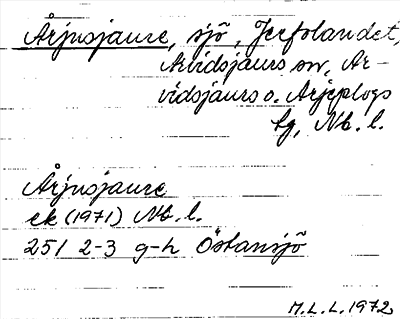 Årjusjaure, sjö, Jerfolandet,
Arvidsjaurs sn, Ar-
vidsjaurs o. Arjeplogs
tg, Nb. l.
Årjusjaure
ek (1971) Nb. l.
25I 2-3 g-h Östansjö
M.L.L. 1972